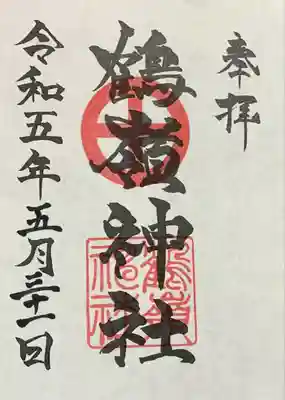 奉拝
鶴嶺神社
鶴嶺神社
令和五年五月三十一日